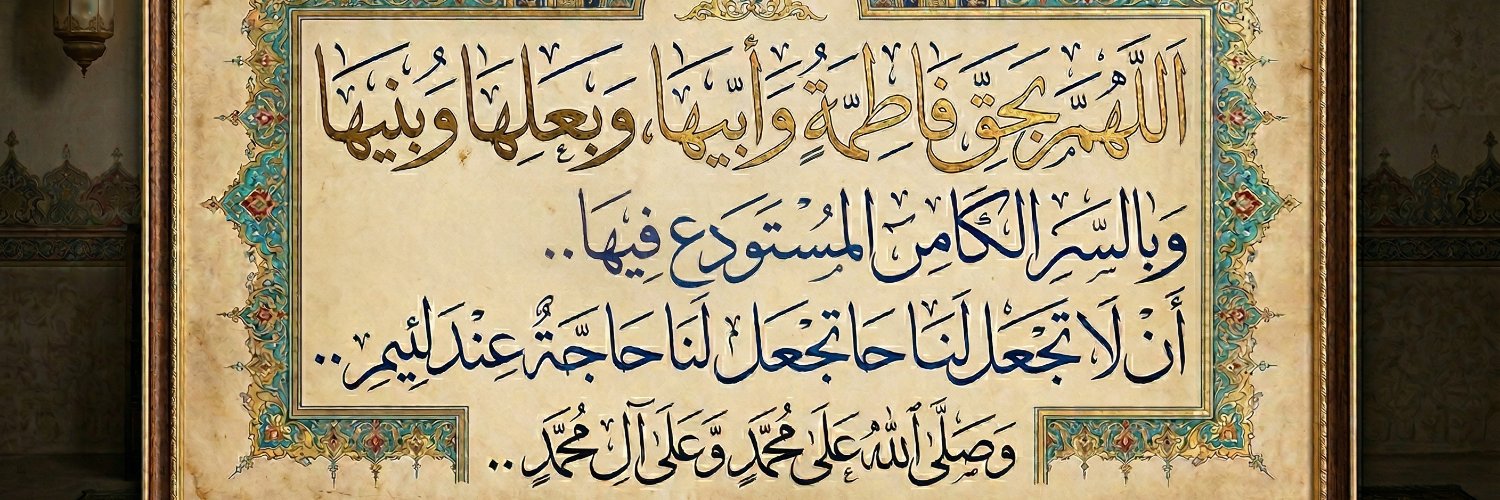 اَللَّهُمَّ بِحَقِّ فَاطِمَةٍ وَأَبّيهَا، وَبَعَلِهَا وَبُنِيهَا
وَبالسِّرِ الكَامِن المُسْتَودَع فِيهَا..
أَنْ لَا تَجْعَل لَنَا حَا تجْعَل لَنَا حَاجَّةٌ عِنْدَ لِئِيمِ..
وَصَلَّىٰ اللهُ عَلَىٰ مُحَمَّدٍ وَّعَلَىٰ آلِ مُحَمَّدٍ..